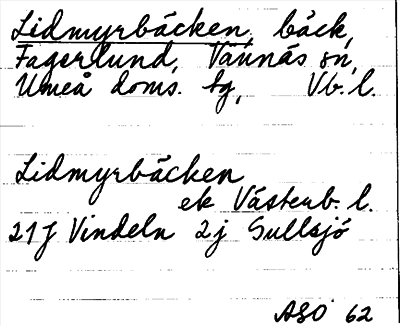 Lidmyrbäcken, bäck,
Fagerlund, Vännäs sn,
Umeå doms. tg, Vb. l.
Lidmyrbäcken
ek Västerb. l.
21J Vindeln 2j Gullsjö
ASO 62